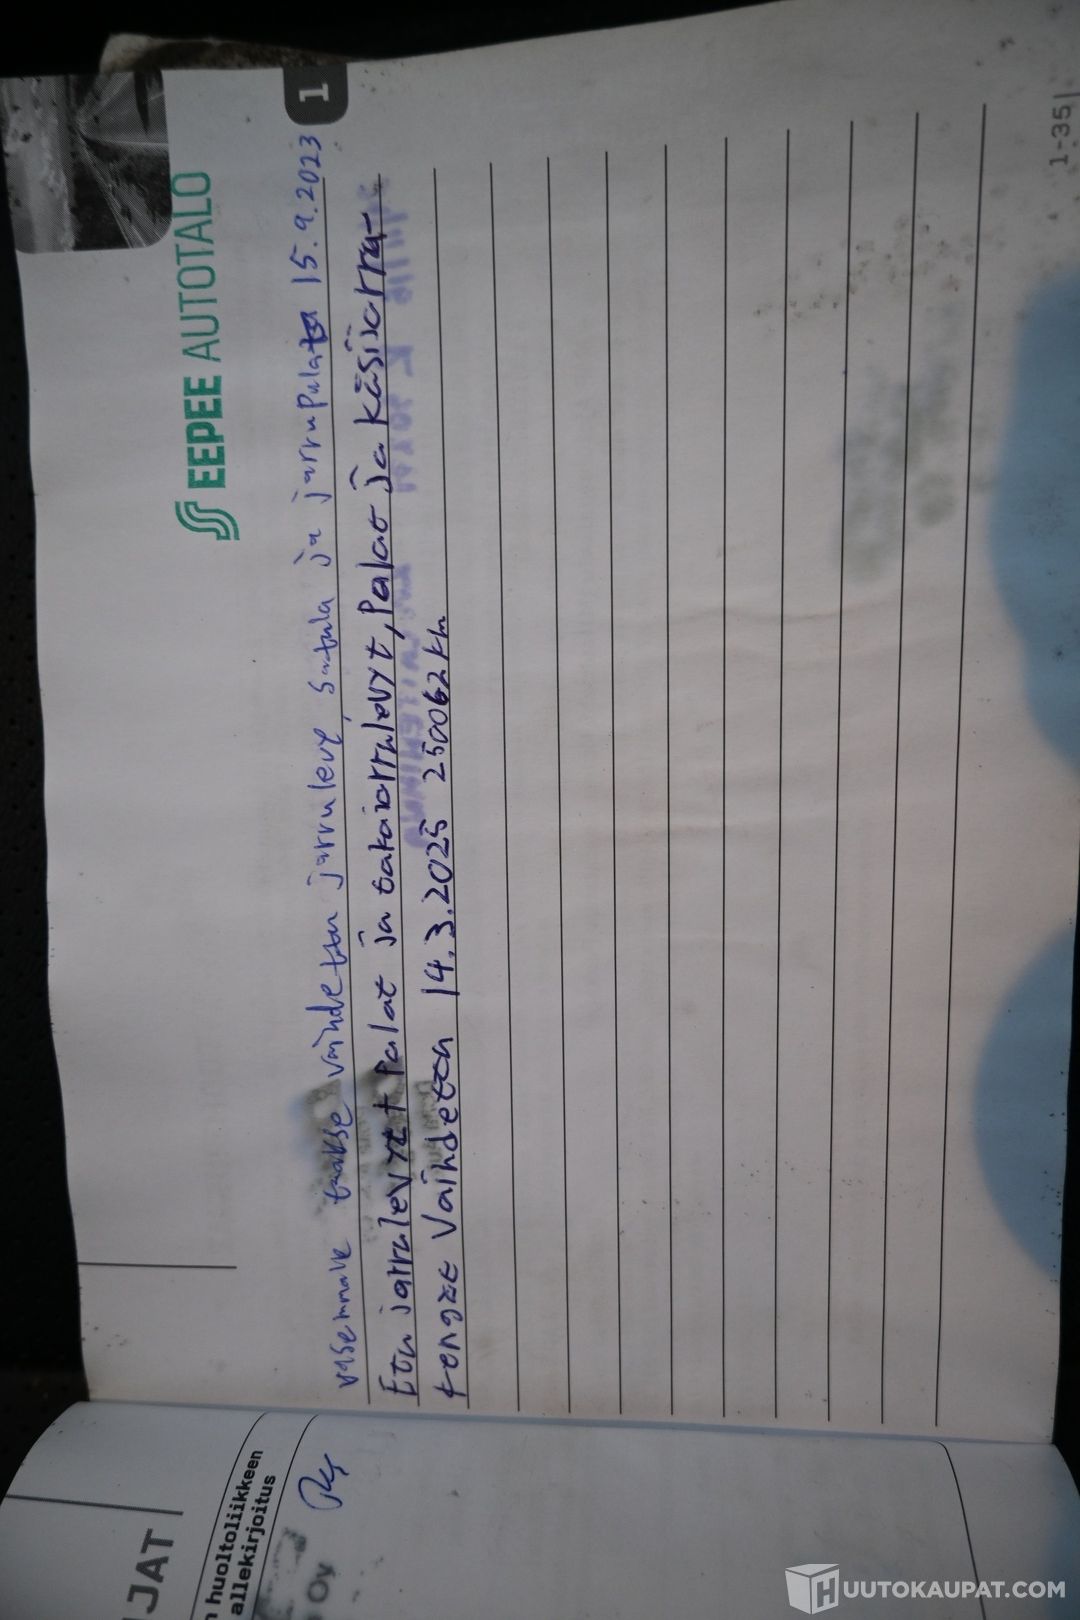 EEPEE AUTOTALO
1
vasemmalle taakse vaihdettu jarrulevy, satula ja jarrupalata 15.9.2023
Etu jarrulevyt + Palat ja takajarrulevyt, Palat ja käsijarru-
kengät Vaihdettu 14.3.2025 250062km
1-35|
JAT
n huoltoliikkeen
allekirjoitus
Oy
HUUTOKAUPAT.COM